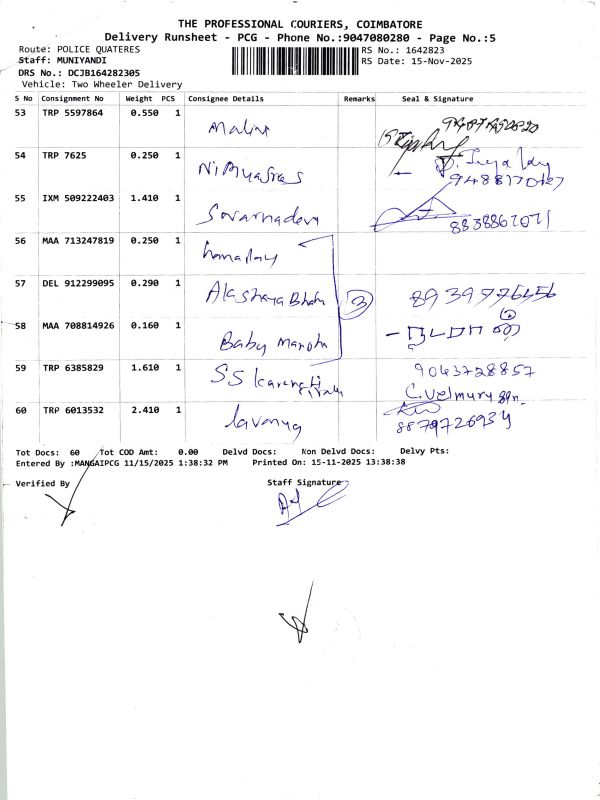 THE PROFESSIONAL COURIERS, COIMBATORE
Delivery Runsheet - PCG - Phone No.:9047080280 - Page No.:5
Route: POLICE QUATERES
RS No.: 1642823
Staff: MUNIYANDI
RS Date: 15-Nov-2025
DRS No.: DCJB164282305
Vehicle: Two Wheeler Delivery
S No Consignment No Weight PCS Consignee Details Remarks Seal & Signature
53 TRP 5597864 0.550 1
54 TRP 7625 0.250 1
9488170127
55 IXM 509222403 1.410 1 Sovarnadevi
8838862071
56 MAA 713247819 0.250 1
57 DEL 912299095 0.290 1 Akshaya Bhanu 3 8939776456
58 MAA 708814926 0.160 1 Baby Manoha
59 TRP 6385829 1.610 1 SS
9043728857
C. Velmurugan
60 TRP 6013532 2.410 1 lavanya
8879726934
Tot Docs: 60 Tot COD Amt: 0.00 Delvd Docs: Non Delvd Docs: Delvy Pts:
Entered By :MANGAIPCG 11/15/2025 1:38:32 PM Printed On: 15-11-2025 13:38:38
Verified By Staff Signature